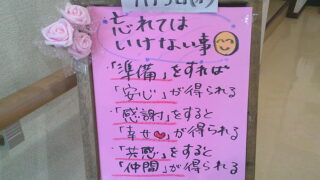 忘れては
いけない事
「準備」をすれば
「安心」が得られる
「感謝」をすると
「幸せ❤」が得られる
「共感」をすると
「仲間」が得られる